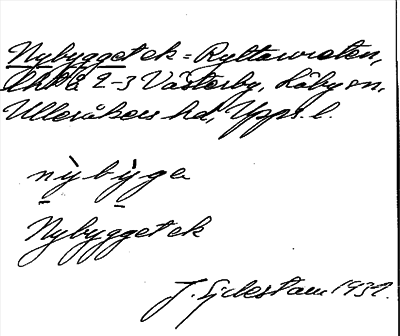 Nybygget ek = Ryttarvreten,
2-3 Västerby, Läby sn,
Ulleråkers hd, Upps. l.
nỳbỳga
Nybygget ek
J. Sjelestam 1932.